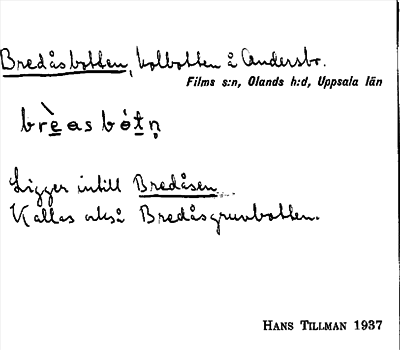 Bredåsbotten, kolbotten å Andersbr.
Films s:n, Olands h:d, Uppsala län
brèas bótn̥
Ligger intill Bredåsen
Kallas också Bredåsgruvbotten.
HANS TILLMAN 1937